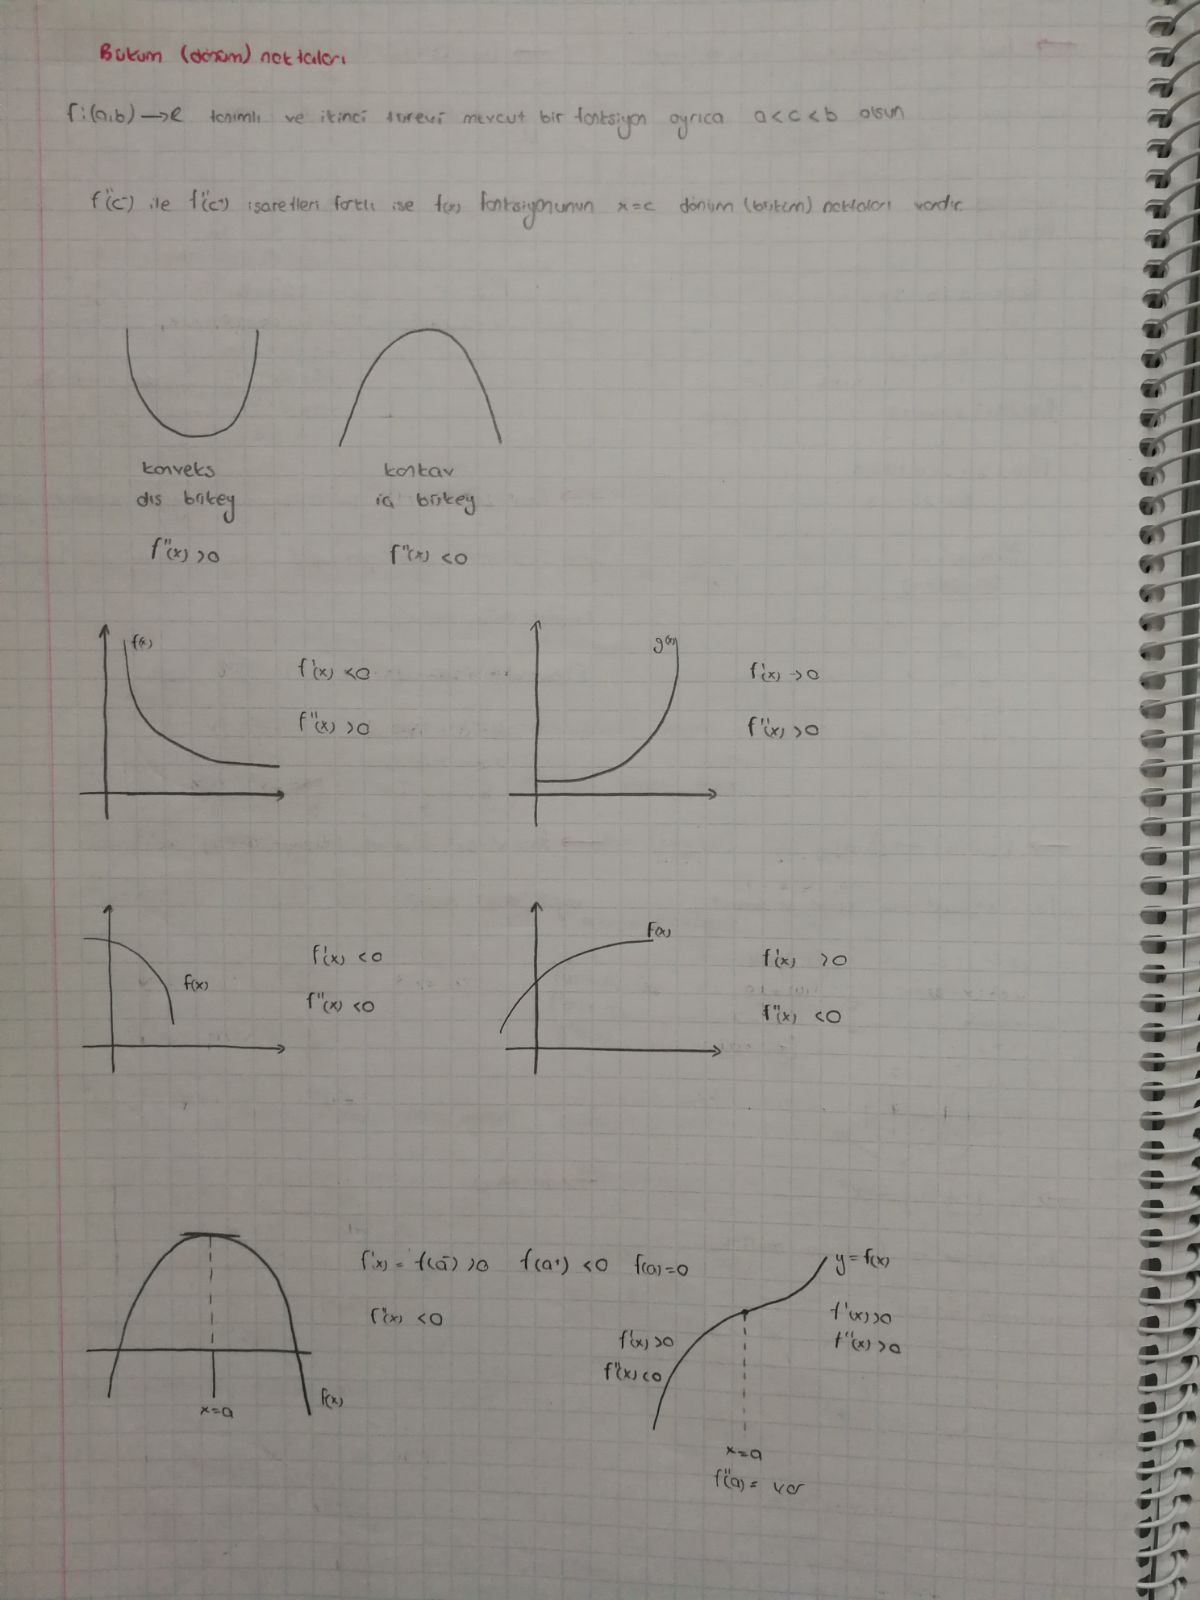 Büküm (dönüm) noktaları
f:(a,b) → R tanımlı ve ikinci türevi mevcut bir fonksiyon ayrıca a<c<b olsun
f"(c⁻) ile f"(c⁺) işaretleri farklı ise f(x) fonksiyonunun x=c dönüm (büküm) noktaları vardır
konveks konkav
dış bükey iç bükey
f"(x) >0 f"(x) <0
f(x) g(x)
f'(x) <0 f'(x) >0
f"(x) >0 f"(x) >0
f(x)
f'(x) <0 f'(x) >0
f(x)
f"(x) <0 f"(x) <0
f'(x) = f(a⁻) >0 f(a⁺) <0 f(a)=0 y=f(x)
f"(x) <0 f'(x)>0
f'(x) >0 f"(x)>0
f"(x) <0
f(x)
x=a
x=a
f"(a)= var